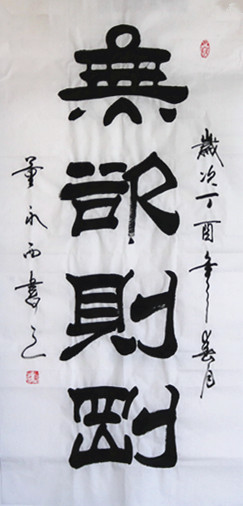 歲次丁酉年春月
無欲則剛
董永西書之